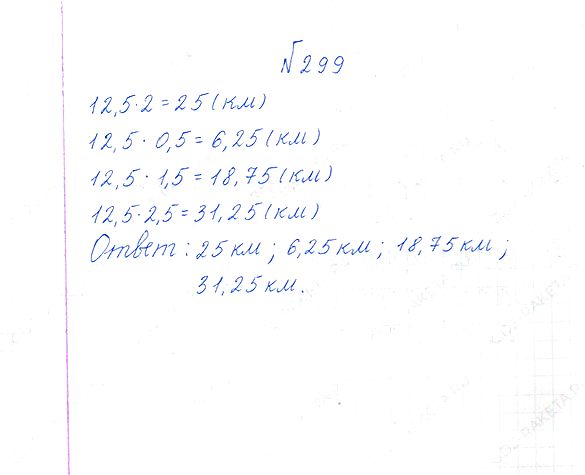 №299
12,5·2=25(км)
12,5·0,5=6,25(км)
12,5·1,5=18,75(км)
12,5·2,5=31,25(км)
Ответ: 25км; 6,25км; 18,75км;
31,25км.